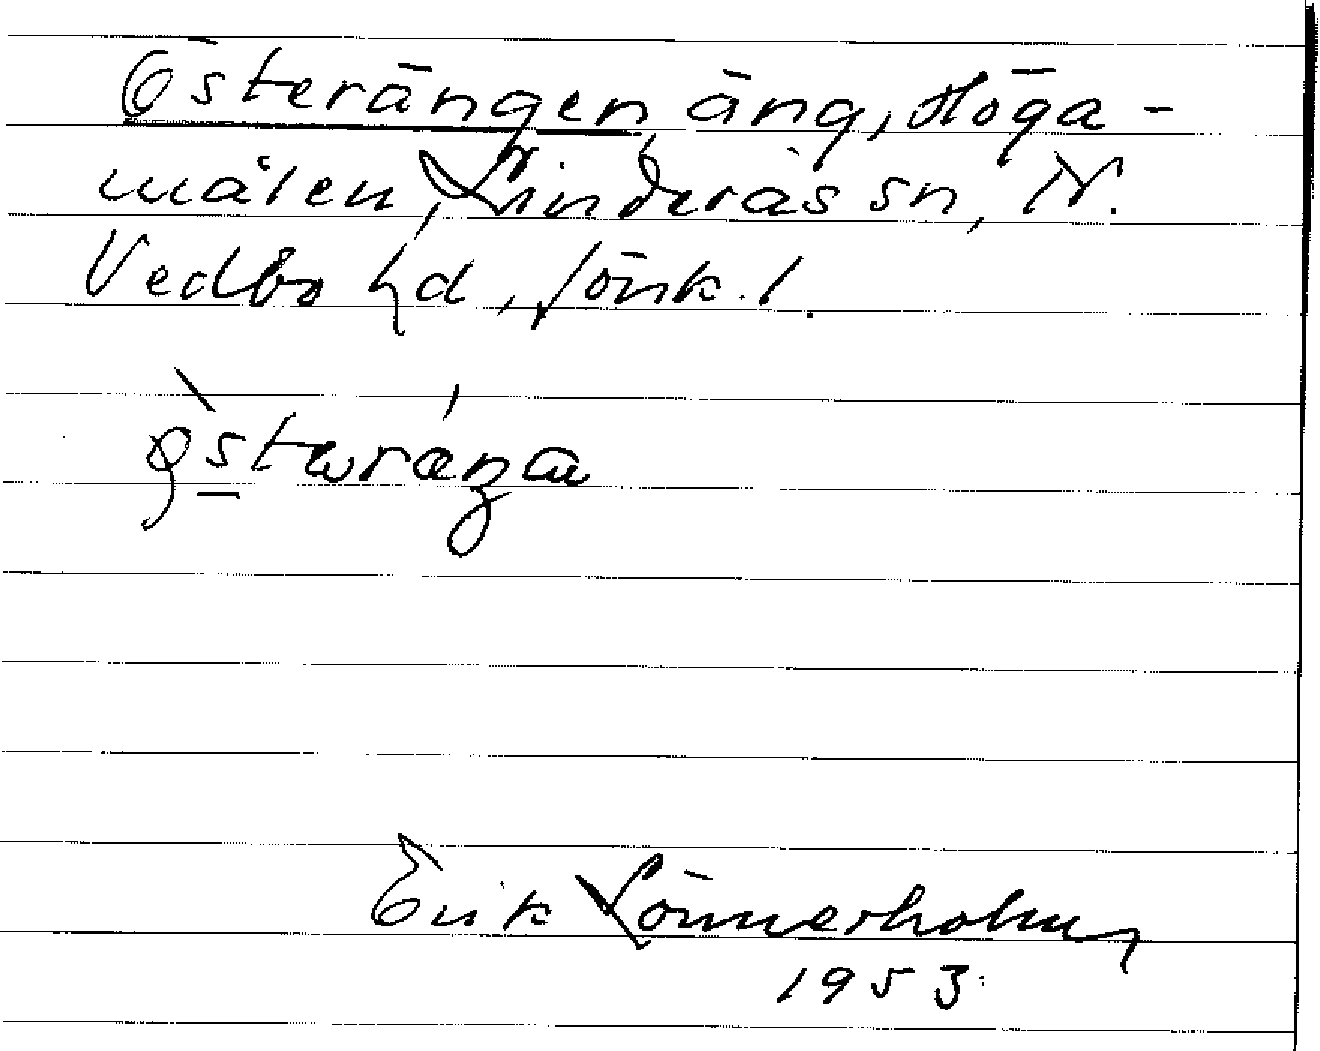 Österängen, äng, Höga-
målen, Linderås sn, N.
Vedbo hd, Jönk. l.
Erik Lönnerholm
1953